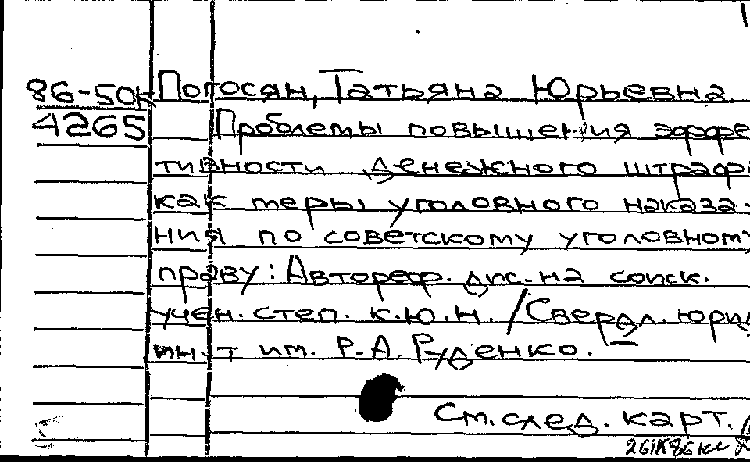 86-50к Погосян, Татьяна Юрьевна
4265 Проблемы повышения эффе
тивности денежного штрафа
как меры уголовного наказа-
ния по советскому уголовному
праву: Автореф. дис. на соиск.
учен. степ. к.ю.н. / Свердл. юрид
ин-т им. Р.А. Руденко. –
См. след. карт.